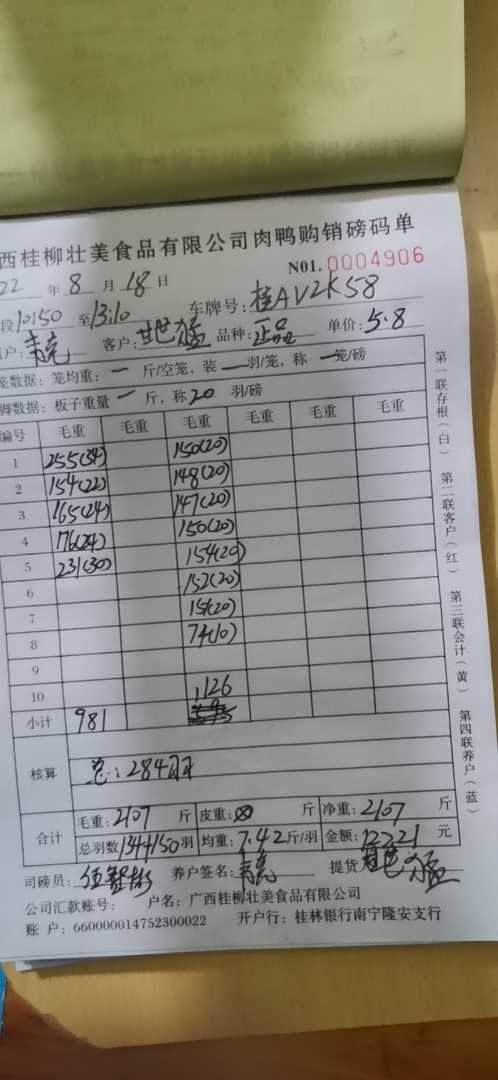 西桂柳壮美食品有限公司肉鸭购销磅码单
22 年 8 月 18 日 N01. 0004906
段 10:50 至 13:10 车牌号: 桂AV2K58
户: 客户: 品种: 正品 单价: 5.8
笼数据: 笼均重: 一 斤/空笼, 装 一 羽/笼, 称 一 笼/磅
脚数据: 板子重量 一 斤, 称 20 羽/磅
编号 毛重 毛重 毛重 毛重 毛重 毛重
1 255(34) 150(20)
2 154(22) 148(20)
3 165(24) 147(20)
4 176(24) 150(20)
5 231(30) 154(20)
6 152(20)
7 151(20)
8 74(10)
9
10 1126
小计 981
核算 总: 284羽
合计 毛重: 2107 斤 皮重: ⊗ 斤 净重: 2107 斤
总羽数 134+150 羽 均重: 7.42 斤/羽 金额: 12221 元
司磅员: 养户签名: 提货
公司汇款账号: 户名: 广西桂柳壮美食品有限公司
账 户: 660000014752300022 开户行: 桂林银行南宁隆安支行
第一联存根(白) 第二联客户(红) 第三联会计(黄) 第四联养户(蓝)